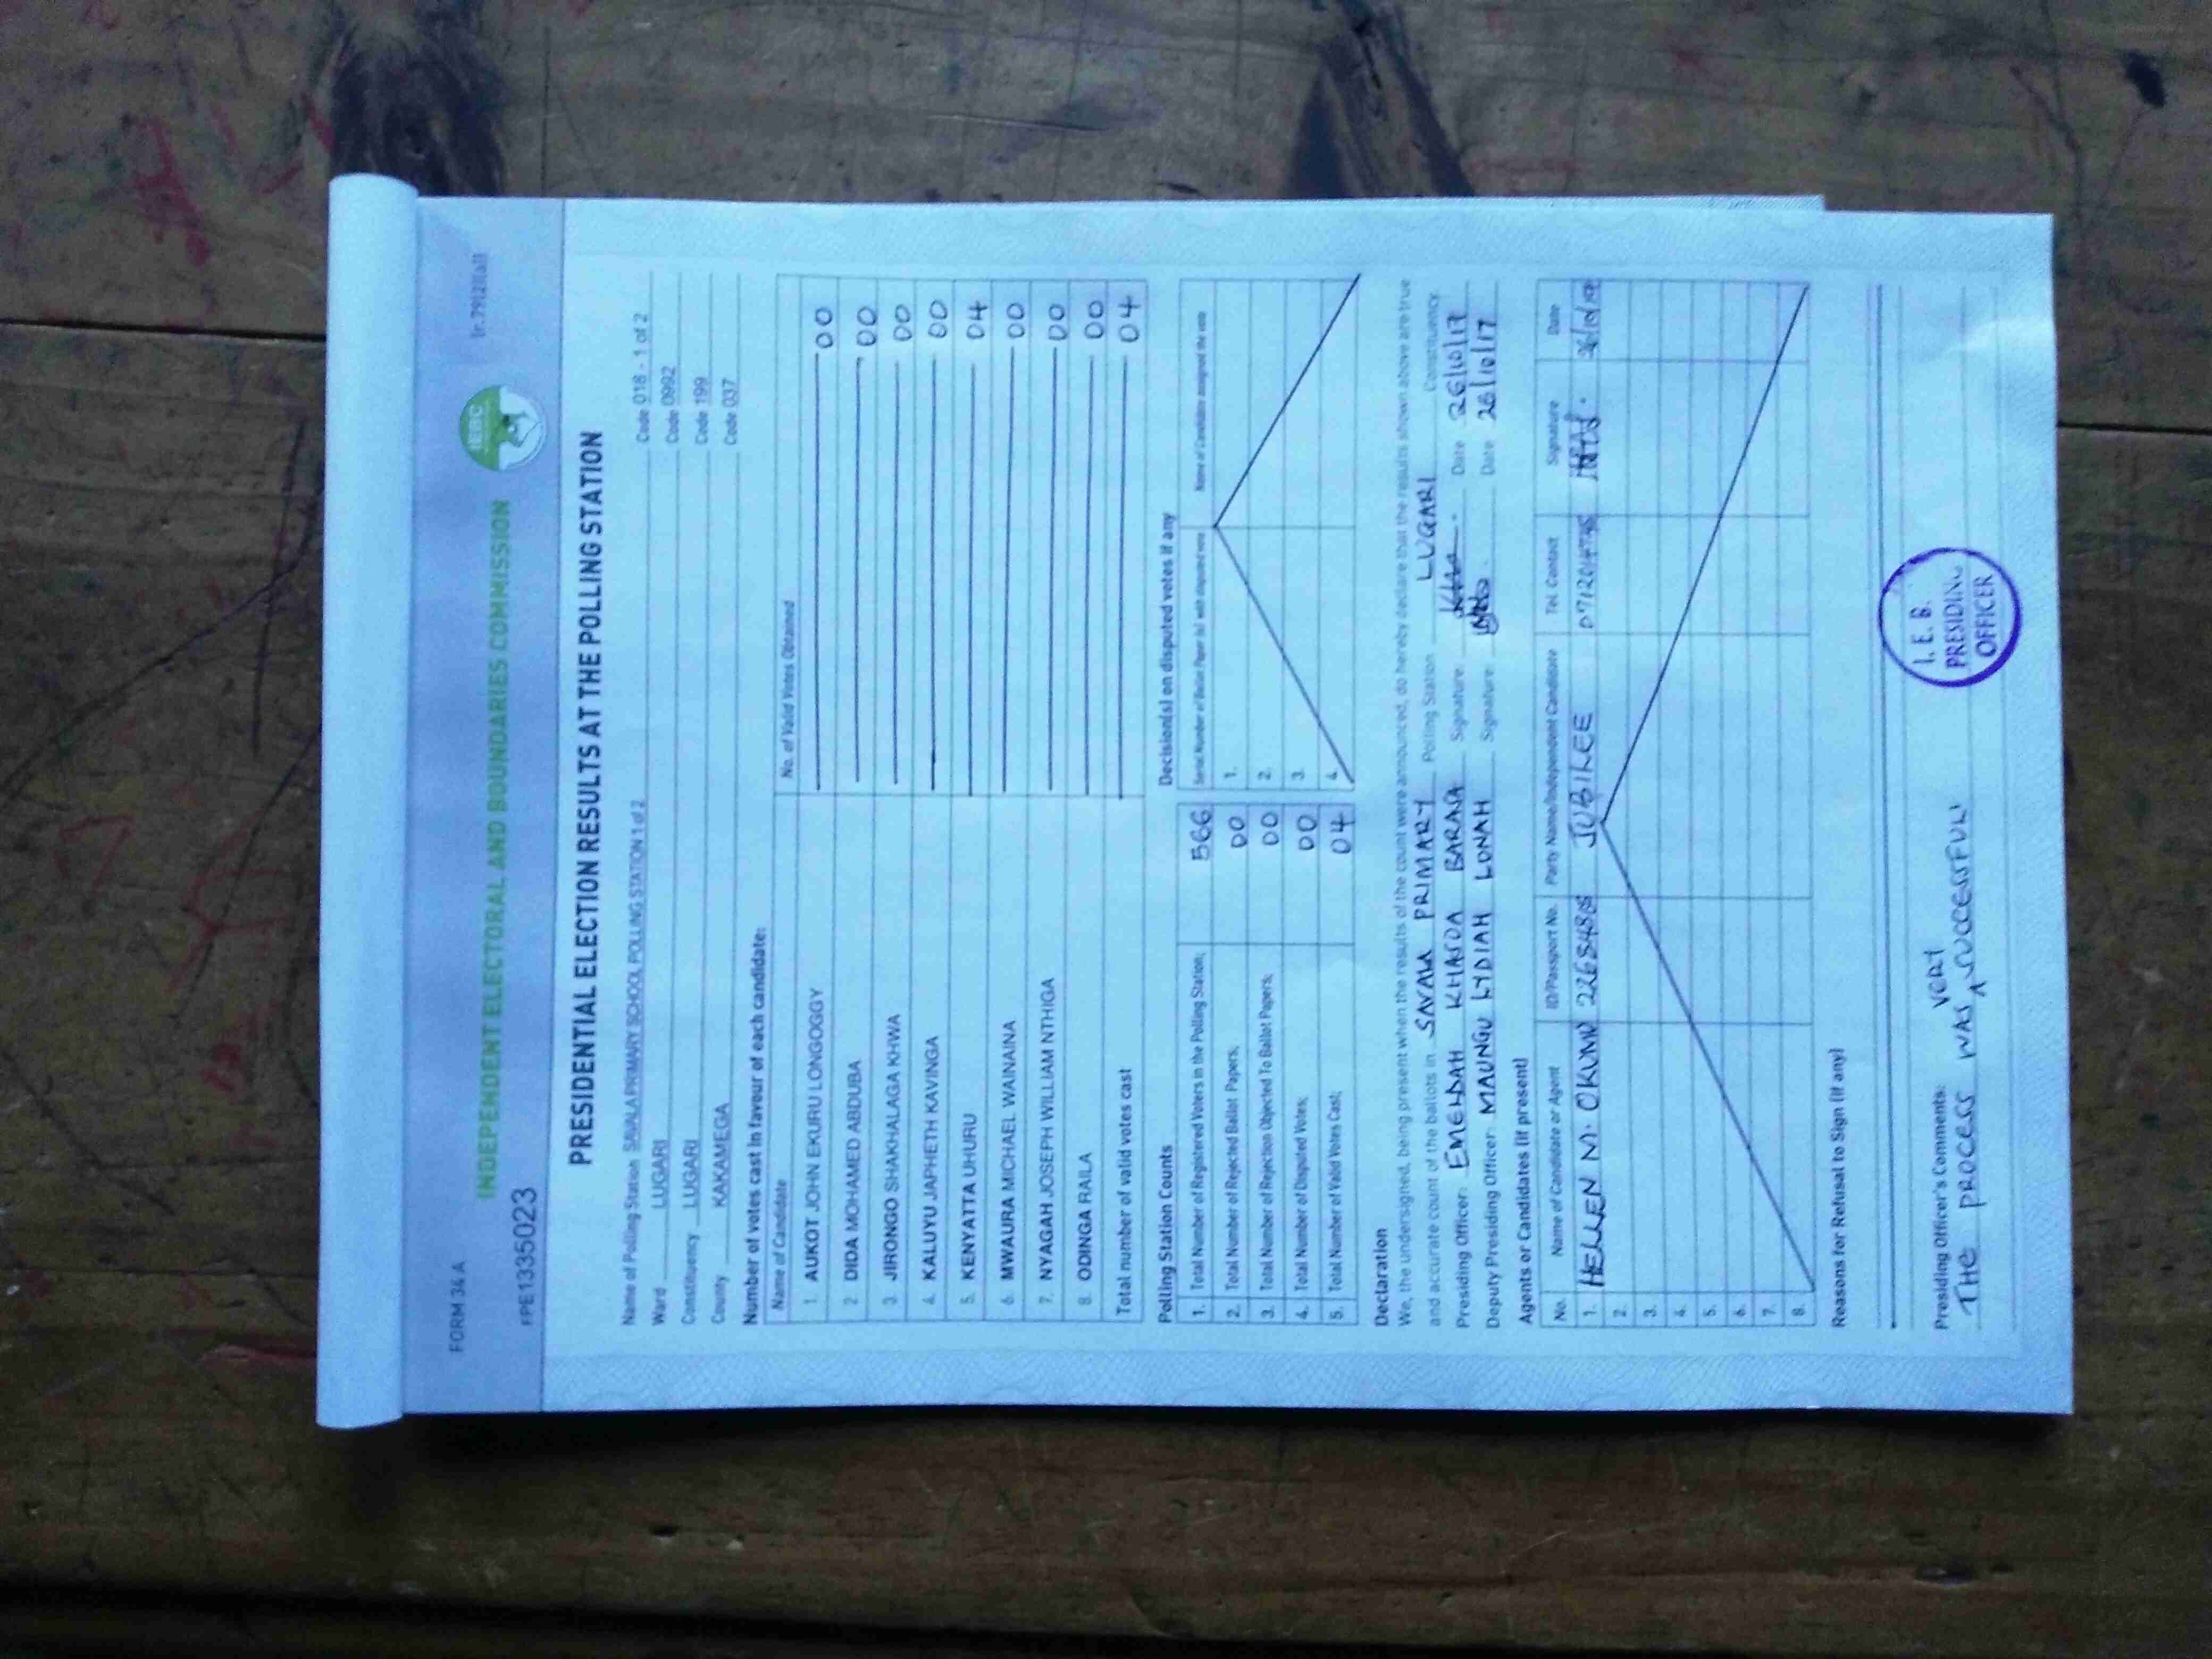 FORM 34 A
INDEPENDENT ELECTORAL AND BOUNDARIES COMMISSION
IEBC
(r.79(2)(a))
FPE1335023
PRESIDENTIAL ELECTION RESULTS AT THE POLLING STATION
Name of Polling Station SAVALA PRIMARY SCHOOL POLLING STATION 1 of 2 Code 018 - 1 of 2
Ward LUGARI Code 0992
Constituency LUGARI Code 199
County KAKAMEGA Code 037
Number of votes cast in favour of each candidate:
Name of Candidate No. of Valid Votes Obtained
1. AUKOT JOHN EKURU LONGOGGY 00
2. DIDA MOHAMED ABDUBA 00
3. JIRONGO SHAKHALAGA KHWA 00
4. KALUYU JAPHETH KAVINGA 00
5. KENYATTA UHURU 04
6. MWAURA MICHAEL WAINAINA 00
7. NYAGAH JOSEPH WILLIAM NTHIGA 00
8. ODINGA RAILA 00
Total number of valid votes cast 04
Polling Station Counts
1. Total Number of Registered Voters in the Polling Station; 566
2. Total Number of Rejected Ballot Papers; 00
3. Total Number of Rejection Objected To Ballot Papers; 00
4. Total Number of Disputed Votes; 00
5. Total Number of Valid Votes Cast; 04
Decision(s) on disputed votes if any
Serial Number of Ballot Paper (s) with disputed vote Name of Candidate assigned the vote
1.
2.
3.
4.
Declaration
We, the undersigned, being present when the results of the count were announced, do hereby declare that the results shown above are true
and accurate count of the ballots in SAVALA PRIMARY Polling Station LUGARI Constituency.
Presiding Officer: EMELDAH KHASOA BARASA Signature: Date 26/10/17
Deputy Presiding Officer: MAUNGU LYDIAH LONAH Signature: Date 26/10/17
Agents or Candidates (if present)
No. Name of Candidate or Agent ID/Passport No. Party Name/Independent Candidate Tel. Contact Signature Date
1. HELLEN M. OKUMU JUBILEE 26/10/17
2.
3.
4.
5.
6.
7.
8.
Reasons for Refusal to Sign (if any)
Presiding Officer's Comments:
THE PROCESS WAS VERY SUCCESSFUL
I. E. B.
PRESIDING
OFFICER